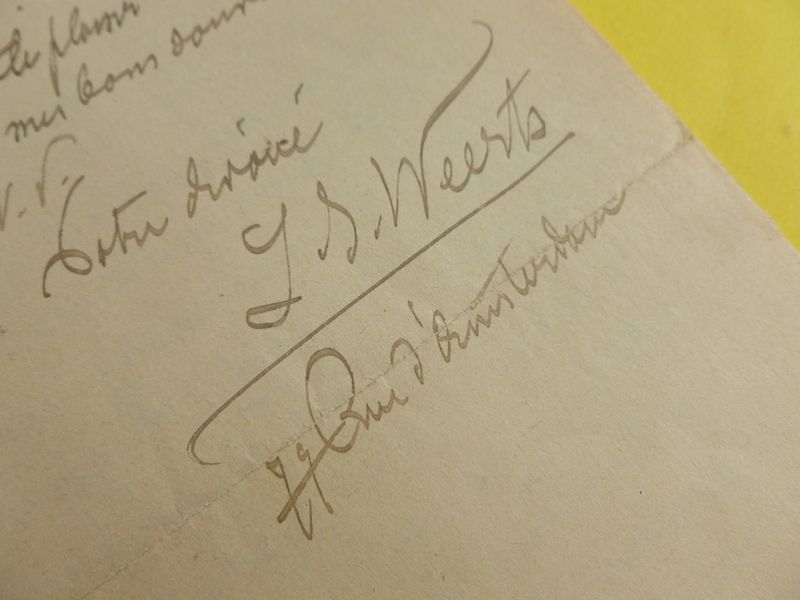 le plaisir
mes bons souv
Votre dévoué
J. J. Weerts
77 Rue d'Amsterdam